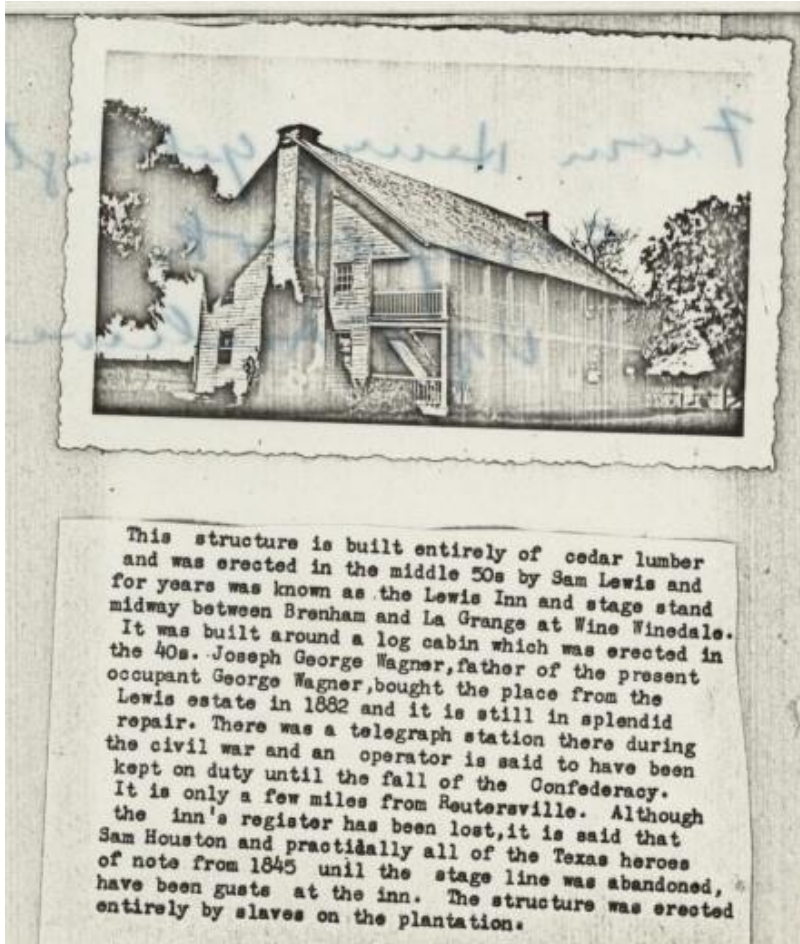 From Henry
This structure is built entirely of cedar lumber
and was erected in the middle 50s by Sam Lewis and
for years was known as the Lewis Inn and stage stand
midway between Brenham and La Grange at Wine Winedale.
It was built around a log cabin which was erected in
the 40s. Joseph George Wagner,father of the present
occupant George Wagner,bought the place from the
Lewis estate in 1882 and it is still in splendid
repair. There was a telegraph station there during
the civil war and an operator is said to have been
kept on duty until the fall of the Confederacy.
It is only a few miles from Reutersville. Although
the inn's register has been lost,it is said that
Sam Houston and practidally all of the Texas heroes
of note from 1845 unil the stage line was abandoned,
have been gusts at the inn. The structure was erected
entirely by slaves on the plantation.